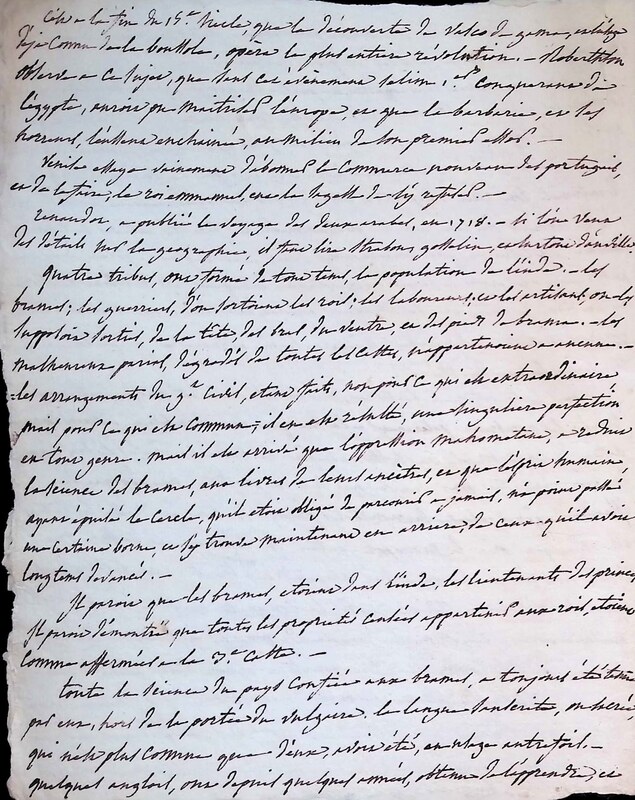 C'est a la fin du 15.e Siecle, que la découverte de vasco de gama, et l'usage
deja Connu de la boussole, opéra la plus entiere révolution. — Robertson
observe a ce sujet, que sans cet évènement selim 1.er Conquerant de
l'égypte, auroit pu maitriser l'europe, et que la barbarie, et ses
horreurs, l'eussent enchainée, au milieu de son premier essor. —
Venise essaya vainement d'abord le Commerce nouveau des portugais,
et de la faire, le roi emmanuel, eut la de s'y refuser. —
renaudot, a publié le voyage des deux arabes, en 1718. — Si l'on veut
des détails sur la geographie, il faut lire strabon, gosselin, et surtout d'anville
quatre tribus, ont formé de tout tems, la population de l'inde. — les
brames; les guerriers, d'ou sortoient les rois; les laboureurs; et les artisans; on les
supposoit sortis, de la tête, des bras, du ventre, et des pieds de brama. — Les
malheureux parias, dégradés de toutes les castes, n'appartenoient a aucune. —
les arrangements du g.t Civil, etant faits, non pour ce qui est extraordinaire
mais pour ce qui est commun; il en est résulté, une singuliere perfection
en tout genre. mais il est arrivé que l'oppression mahometane, a réduit
la science des brames, aux livres de leurs ancêtres, et que l'esprit humain,
ayant épuisé le cercle, qu'il etoit obligé de parcourir a jamais, n'a point passé
une certaine borne, et s'y trouve maintenant en arriere, de ceux qu'il avoit
longtems devancé. —
Il paroit que les brames, etoient dans l'inde, les lieutenants des princes
Il paroit démontré que toutes les propriétés censées appartenir aux rois, etoient
comme affermées a la 3.e Caste. —
toute la science du pays Confiée aux brames, a toujours été tenue
par eux, hors de la portée du vulgaire. la langue sanscrite, ou sacrée,
qui n'est plus connue que d'eux, avoit été, en usage autrefois. —
quelques anglois, ont depuis quelques années, obtenu de l'apprendre, et